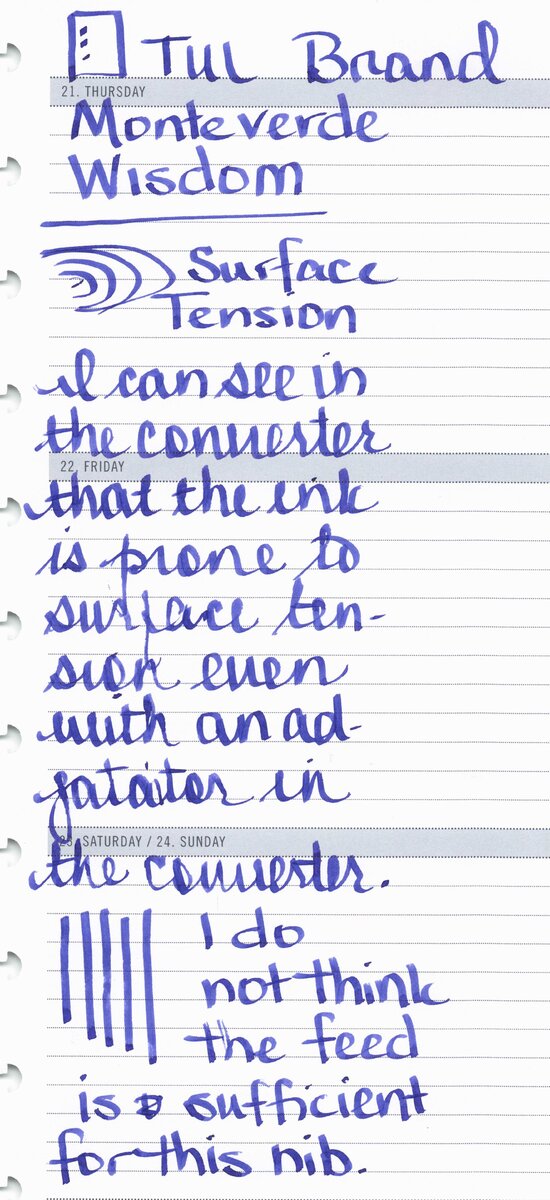 TUL Brand
21. THURSDAY
Monteverde
Wisdom
Surface
Tension
I can see in
the converter
22. FRIDAY
that the ink
is prone to
surface ten-
sion even
with an ad-
jatator in
23. SATURDAY / 24. SUNDAY
the converter.
I do
not think
the feed
is sufficient
for this nib.